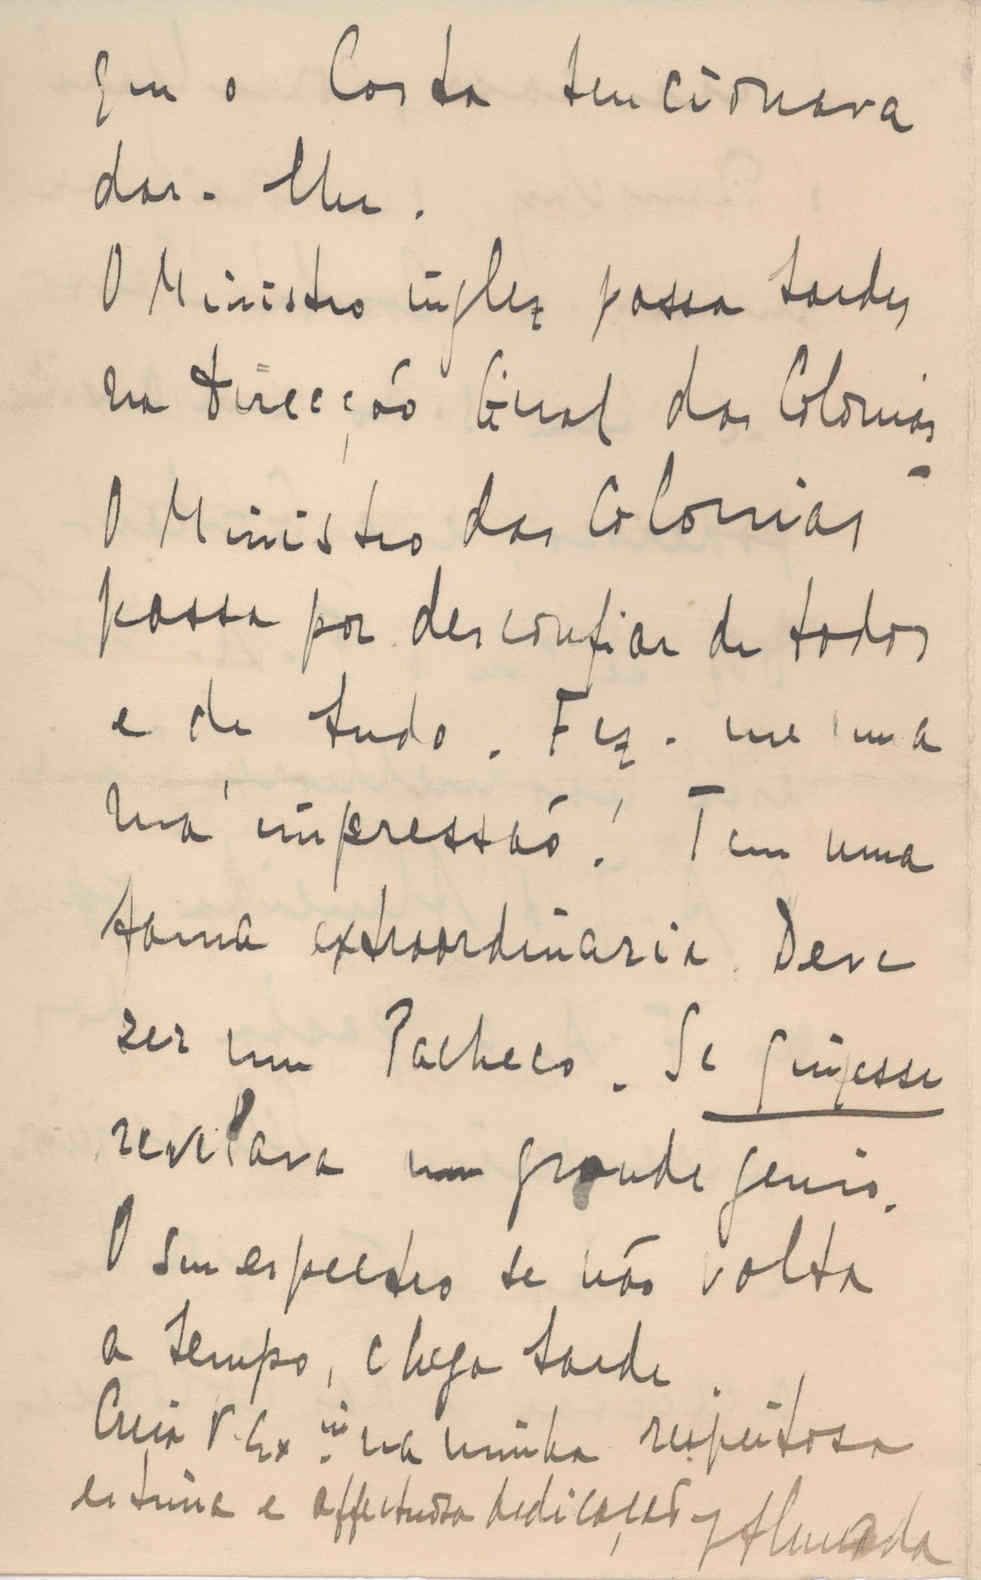 que o Costa tencionava
dar-lhe.
O Ministro inglez passa tardes
na Direcção Geral das Colonias.
O Ministro das Colonias
passa por desconfiar de todos
e de tudo. Fez-me uma
má impressão! Tem uma
fama extraordinaria. Deve
ser um Pacheco. Se
revelava um grande genio.
O seu espectro se não volta
a tempo, chega tarde.
Creia V. Ex.ª na minha respeitosa
estima e affectuosa dedicação
Almada